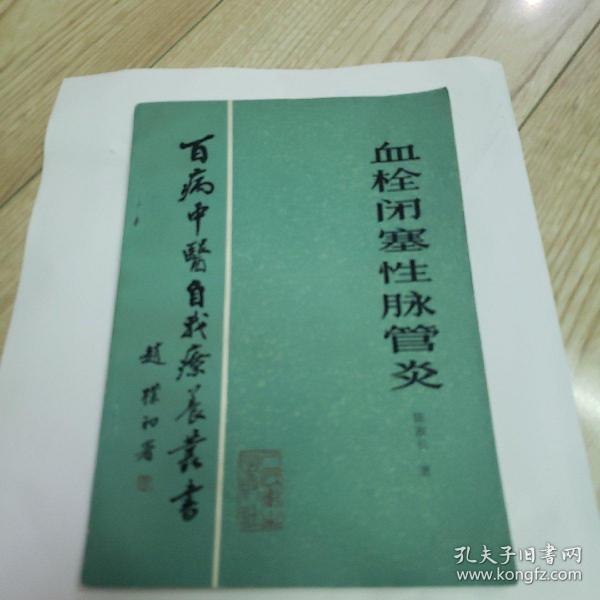 血栓闭塞性脉管炎
陈淑长 著
百病中醫自我療養叢書
趙樸初署
孔夫子旧书网
www.kongfz.com